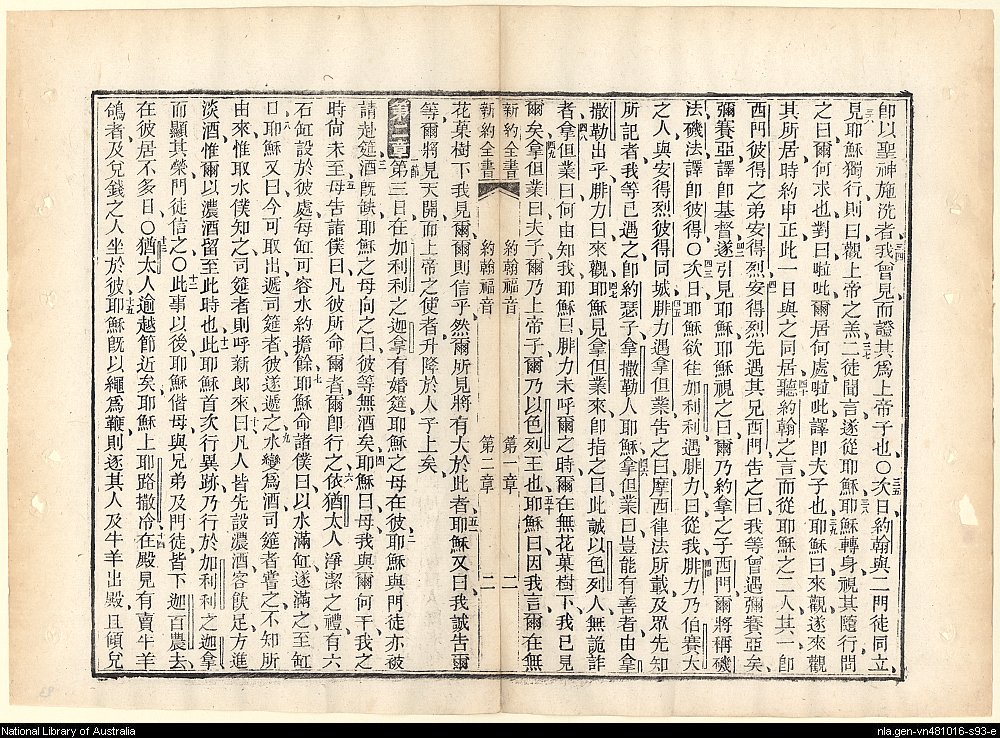 卽以聖神施洗者我曾見而證其爲上帝子也〇次日約翰與二門徒同立
見耶穌獨行則曰觀上帝之羔二徒聞言遂從耶穌耶穌轉身視其隨行問
之曰爾何求也對曰啦吡爾居何處啦吡譯卽夫子也耶穌曰來觀遂來觀
其所居時約申正此一日與之同居聽約翰之言而從耶穌之二人其一卽
西門彼得之弟安得烈安得烈先遇其兄西門告之曰我等曾遇彌賽亞矣
彌賽亞譯卽基督遂引見耶穌耶穌視之曰爾乃約拿之子西門爾將稱磯
法磯法譯卽彼得〇次日耶穌欲往加利利遇腓力曰從我腓力乃伯賽大
之人與安得烈彼得同城腓力遇拿但業告之曰摩西律法所載及眾先知
所記者我等已遇之卽約瑟子拿撒勒人耶穌拿但業曰豈能有善者由拿
撒勒出乎腓力曰來觀耶穌見拿但業來卽指之曰此誠以色列人無詭詐
者拿但業曰何由知我耶穌曰腓力未呼爾之時爾在無花菓樹下我已見
爾矣拿但業曰夫子爾乃上帝子爾乃以色列王也耶穌曰因我言爾在無
新約全書 約翰福音 第一章 二
新約全書 約翰福音 第二章 二
花菓樹下我見爾爾則信乎然爾所見將有大於此者耶穌又曰我誠告爾
等爾將見天開而上帝之使者升降於人子上矣
第二章 一節 第三日在加利利之迦拿有婚筵耶穌之母在彼耶穌與門徒亦被
請赴筵酒旣缺耶穌之母向之曰彼等無酒矣耶穌曰母我與爾何干我之
時尙未至母告諸僕曰凡彼所命爾者爾卽行之依猶太人淨潔之禮有六
石缸設於彼處每缸可容水約擔餘耶穌命諸僕曰以水滿缸遂滿之至缸
口耶穌又曰今可取出遞司筵者彼遂遞之水變爲酒司筵者嘗之不知所
由來惟取水僕知之司筵者則呼新郎來曰凡人皆先設濃酒客飲足方進
淡酒惟爾以濃酒留至此時也此耶穌首次行異跡乃行於加利利之迦拿
而顯其榮門徒信之〇此事以後耶穌偕母與兄弟及門徒皆下迦百農去
在彼居不多日〇猶太人逾越節近矣耶穌上耶路撒冷在殿見有賣牛羊
鴿者及兌錢之人坐於彼耶穌旣以繩爲鞭則逐其人及牛羊出殿且傾兌
National Library of Australia
nla.gen-vn481016-s93-e